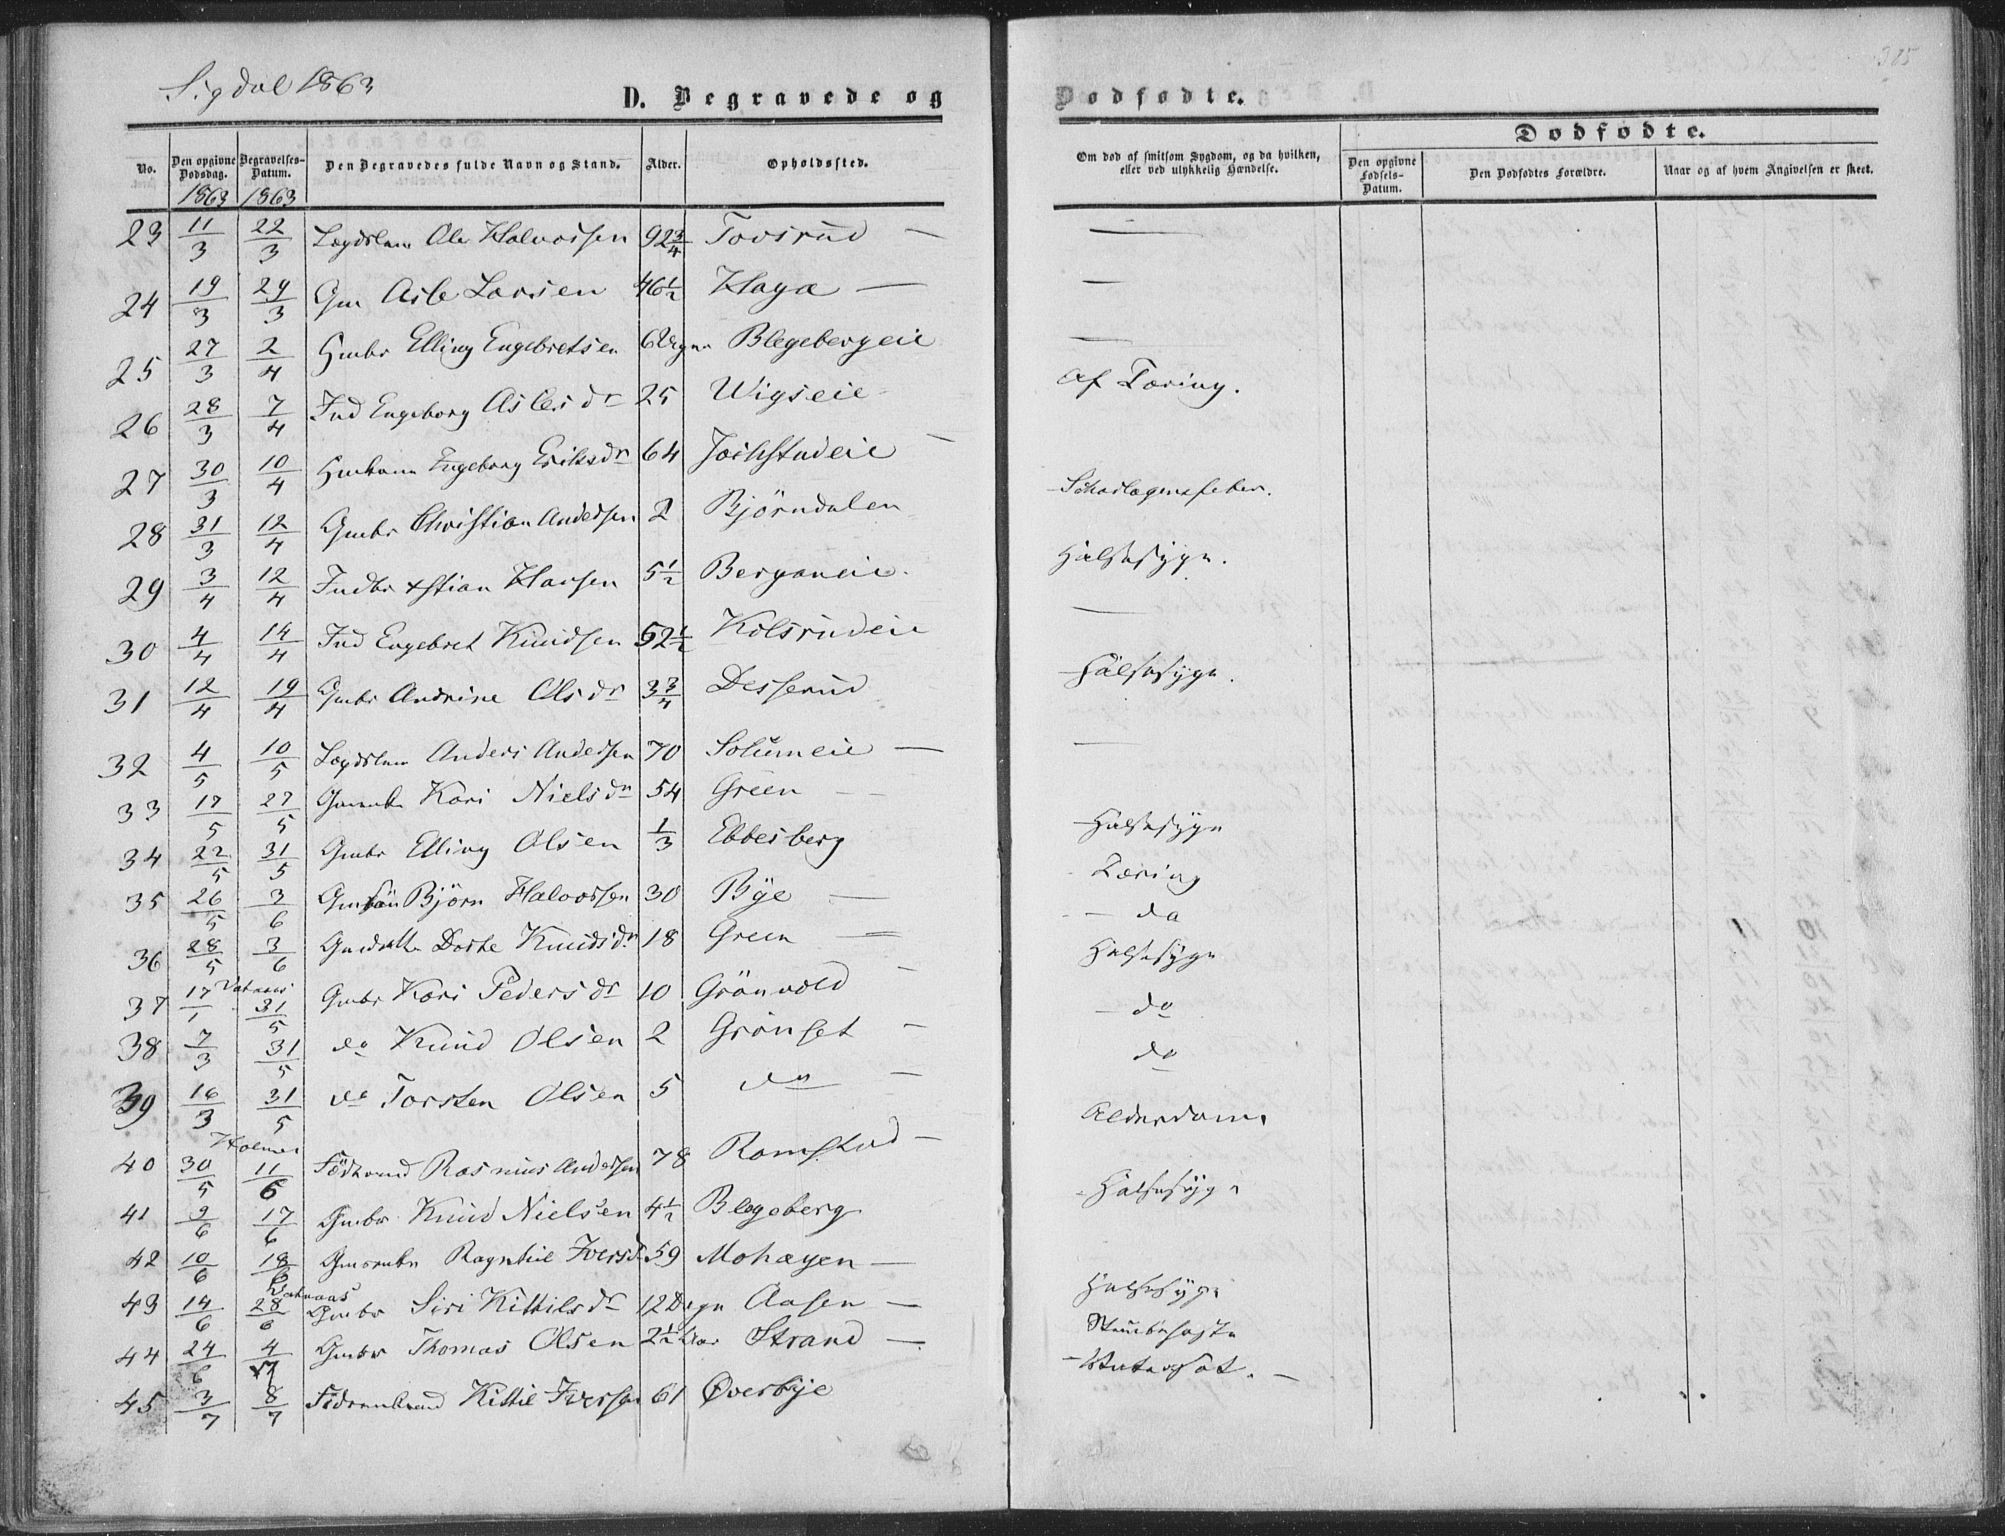 Sigdal 1863
D. Begravede og
No. Den opgivne Dødsdag. Begravelses-Datum. Den Begravedes fulde Navn og Stand. Alder. Opholdssted.
1863 1863
23 11/3 22/3 Lægdslem Ole Halvorsen 92 3/4 Tovsrud —
24 19/3 29/3 Gm Asle Larsen 46 1/2 Haga —
25 27/3 2/4 Hmbr Elling Engebretsen 6 Uger Blegebergeie
26 28/3 7/4 Ind Engeborg Aslesdr 25 Wigseie
27 30/3 10/4 Hmkone Engeborg Eriksdr 64 —
28 31/3 12/4 Gmbr Christian Andersen 2 Bjørndalen
29 3/4 12/4 Indbr xstian Hansen 5 1/2 Berganeie
30 4/4 14/4 Ind Engebret Knudsen 52 1/2 Kolsrudeie
31 12/4 19/4 Gmbr Andrine Olsdr 3 3/4 Desserud
32 4/5 10/5 Lægdslem Anders Andersen 70 Solumeie —
33 17/5 27/5 Kari Nielsdr 54 Green —
34 22/5 31/5 Gmbr Elling Olsen 1/3 Ebbesberg
35 26/5 3/6 Gmsøn Bjørn Halvorsen 30 Bye —
36 28/5 3/6 Gmdatter Dorthe Knudsdr 18 Green —
37 17/1 Vatnaas 31/5 Gmbr Kari Pedersdr 10 Grønvold —
38 7/3 31/5 do Knud Olsen 2 Grønset —
39 16/3 31/5 do Torsten Olsen 5 do —
Holmen
40 30/5 11/6 Rasmus Andersen 78 Ramstad —
41 9/6 17/6 Gmbr Knud Nielsen 4 1/2 Blegeberg
42 10/6 18/6 Ragnhil Iversdr 59 Mohagen —
Vatnaas
43 14/6 28/6 Gmbr Siri Kittilsdr 12 Dage Aasen —
44 24/6 4/7 Gmbr Thomas Olsen 2 1/2 Aar Strand —
45 3/7 8/7 Kittil Iversen 61 Øverbye
Dødfødte.
385
Om død af smitsom Sygdom, og da hvilken, eller ved ulykkelig Hændelse.
Dødfødte.
Den opgivne Fødsels-Datum. Den Dødfødtes Forældre. Naar og af hvem Angivelsen er skeet.
—
—
—
Af Tæring.
Skarlagensfeber.
Halsesyge.
—
Halsesyge.
—
Halsesyge
Tæring
— do
Halsesyge
— do
do
Alderdom
Halsesyge
Halsesyge
Vatersot. —